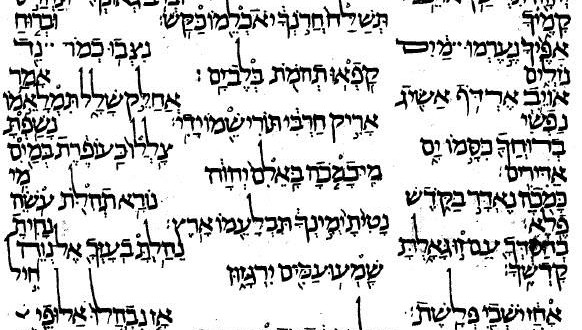 קָמֶיךָ תְּשַׁלַּח חֲרֹנְךָ יֹאכְלֵמוֹ כַּקַּשׁ׃ וּבְרוּחַ
אַפֶּיךָ נֶעֶרְמוּ מַיִם נִצְּבוּ כְמוֹ נֵד
נֹזְלִים קָפְאוּ תְהֹמֹת בְּלֶב יָם׃ אָמַר
אוֹיֵב אֶרְדֹּף אַשִּׂיג אֲחַלֵּק שָׁלָל תִּמְלָאֵמוֹ
נַפְשִׁי אָרִיק חַרְבִּי תּוֹרִישֵׁמוֹ יָדִי׃ נָשַׁפְתָּ
בְרוּחֲךָ כִּסָּמוֹ יָם צָלֲלוּ כַּעוֹפֶרֶת בְּמַיִם
אַדִּירִים׃ מִי כָמֹכָה בָּאֵלִם יְהוָה מִי
כָּמֹכָה נֶאְדָּר בַּקֹּדֶשׁ נוֹרָא תְהִלֹּת עֹשֵׂה
פֶלֶא׃ נָטִיתָ יְמִינְךָ תִּבְלָעֵמוֹ אָרֶץ׃ נָחִיתָ
בְחַסְדְּךָ עַם זוּ גָּאָלְתָּ נֵהַלְתָּ בְעָזְּךָ אֶל נְוֵה
קָדְשֶׁךָ׃ שָׁמְעוּ עַמִּים יִרְגָּזוּן חִיל
אָחַז יֹשְׁבֵי פְּלָשֶׁת׃ אָז נִבְהֲלוּ אַלּוּפֵי